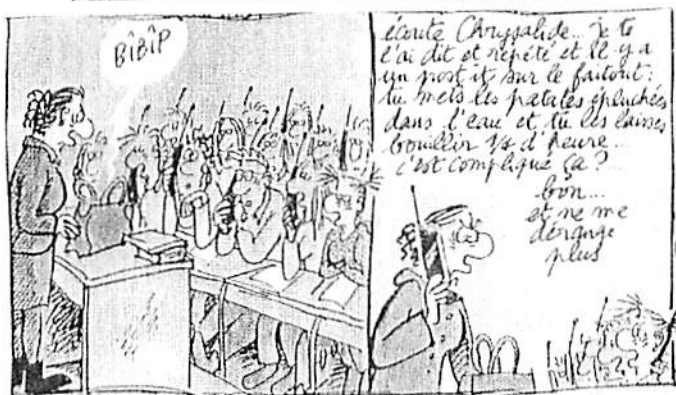 BÎBÎP
écoute Chryssalide... je te
l'ai dit et répété et il y a
un post it sur le faitout :
tu mets les patates épluchées
dans l'eau et tu les laisses
bouillir d'heure...
c'est compliqué ça ?...
bon...
et ne me
dérange
plus